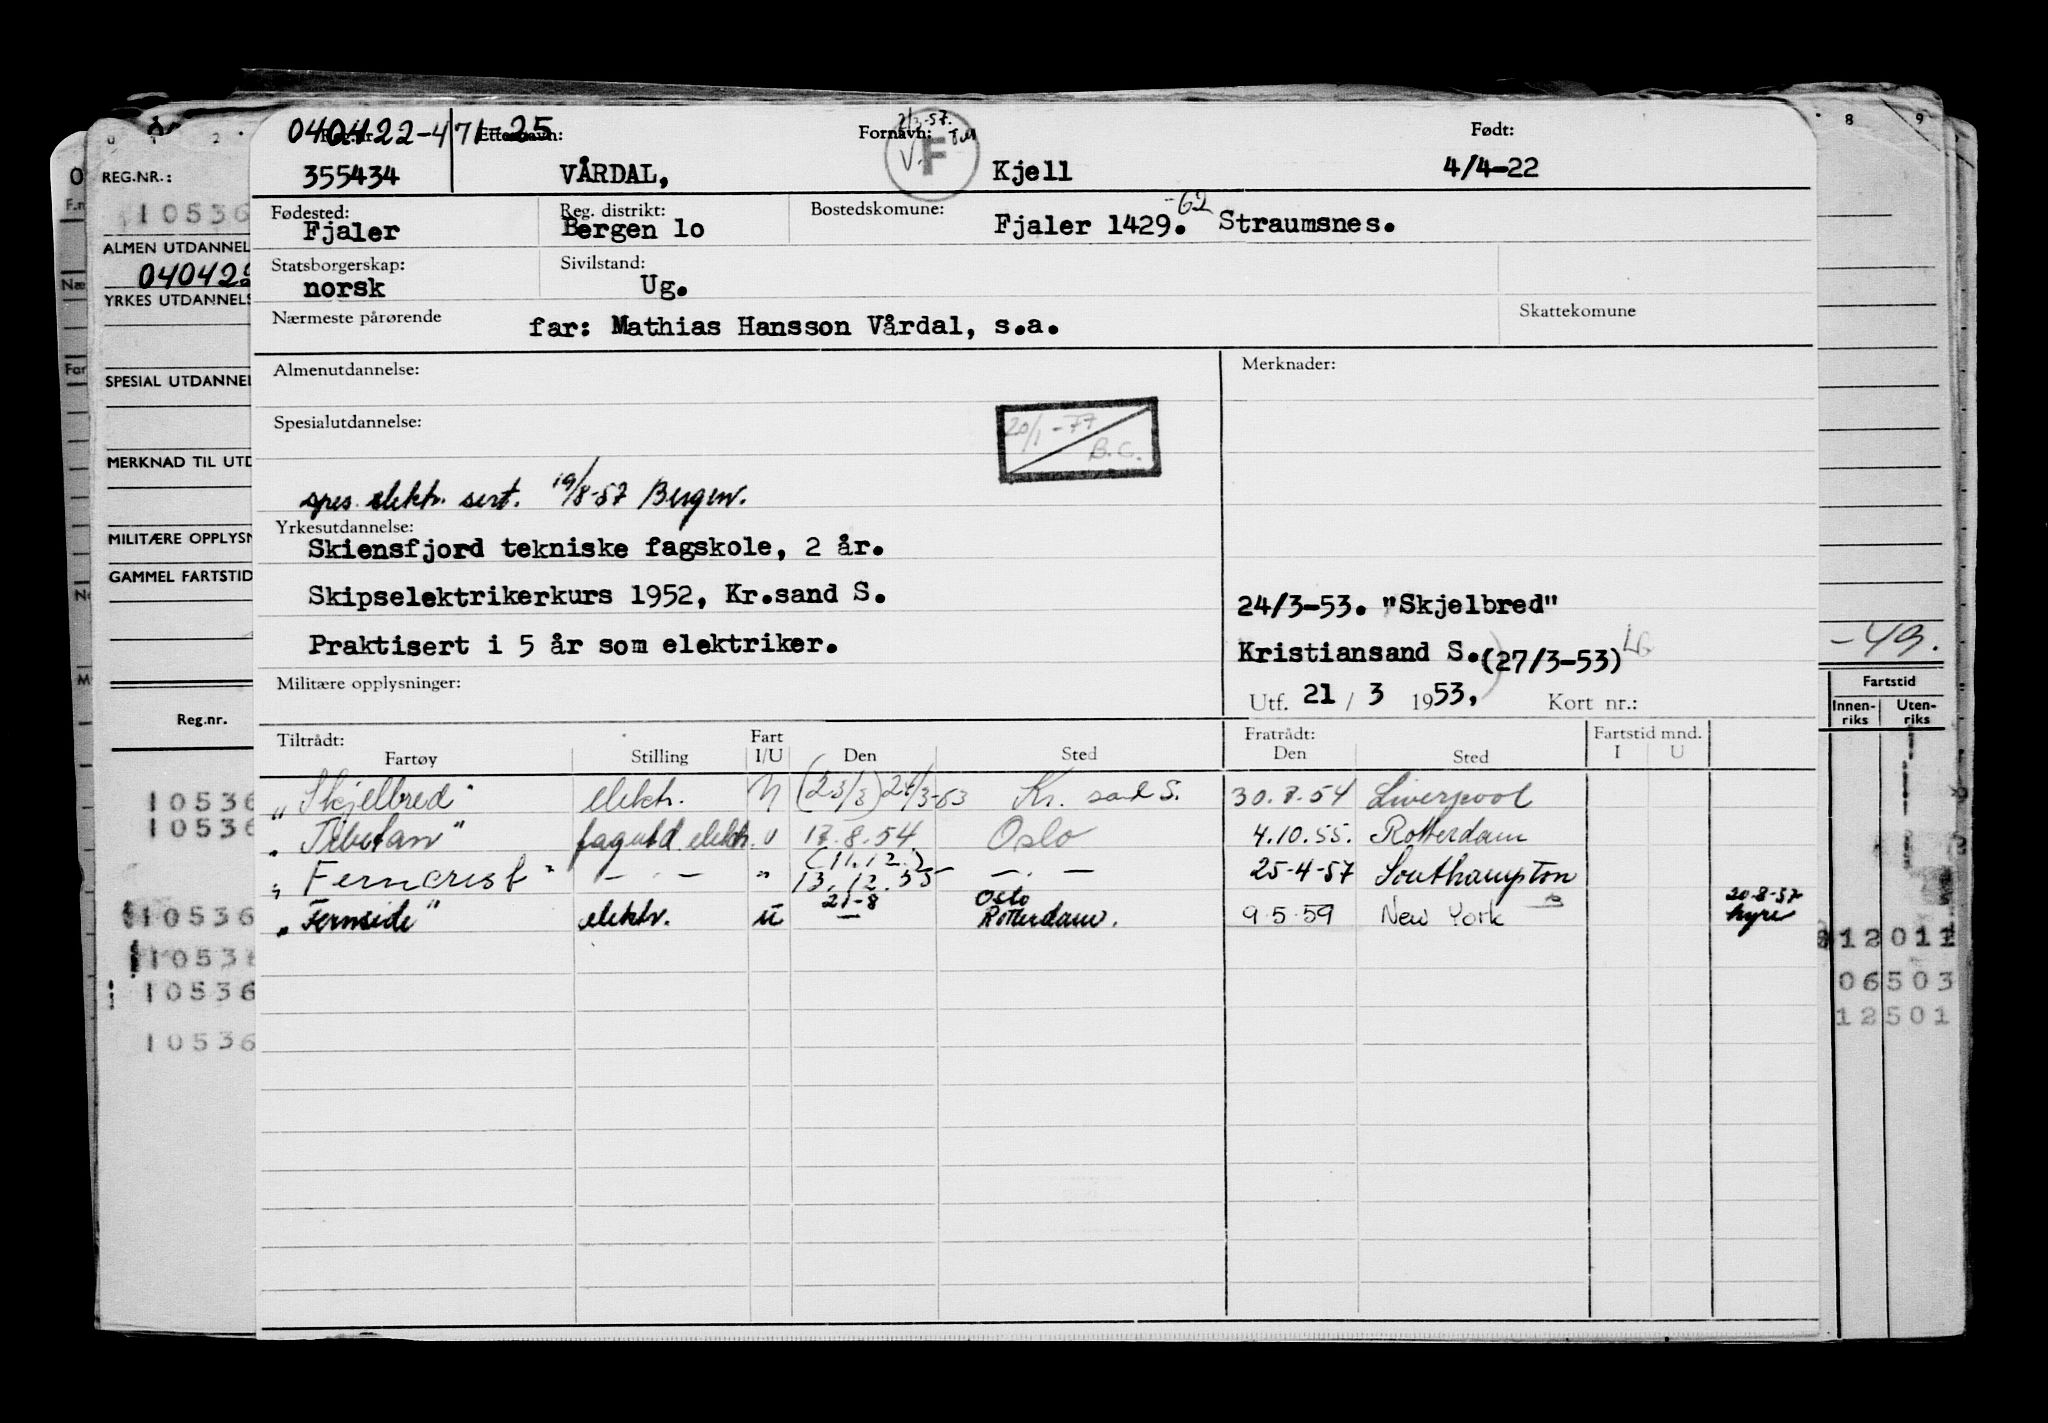 040422-47125
2/3-57.
Reg.nr. Etternavn: Fornavn: Født:
V. F
355434 VÅRDAL, Kjell 4/4-22
Fødested: Reg. distrikt: Bostedskomune:
Fjaler Bergen 1o Fjaler 1429. -62 Straumsnes.
Statsborgerskap: Sivilstand:
norsk Ug.
Nærmeste pårørende Skattekomune
far: Mathias Hansson Vårdal, s.a.
Almenutdannelse: Merknader:
Spesialutdannelse:
20/1-77
B.C.
spes. elektr. sert. 19/8-57 Bergen.
Yrkesutdannelse:
Skiensfjord tekniske fagskole, 2 år.
Skipselektrikerkurs 1952, Kr.sand S. 24/3-53. "Skjelbred"
Praktisert i 5 år som elektriker. Kristiansand S.(27/3-53)
Militære opplysninger: Utf. 21 / 3 1953, Kort nr.:
Tiltrådt: Fart Fratrådt: Fartstid mnd.
Fartøy Stilling I/U Den Sted Den Sted I U
"Skjelbred" elektr. U (23/3) 24/3-53 Kr. sand S. 30.7.54 Liverpool
"Tibetan" fagutd elektr. U 17.8.54. Oslo 4.10.55. Rotterdam
(11.12.)
"Ferncrest" — . — " 13.12.55 — . — 25-4-57 Southampton
21-8 Oslo 20-8-57
"Fernside" elektr. U — Rotterdam. 9.5.59 New York hyre
REG.NR.:
10536
ALMEN UTDANNEL
040422
YRKES UTDANNELS
SPESIAL UTDANNEL
MERKNAD TIL UTD
MILITÆRE OPPLYSN
GAMMEL FARTSTID
Reg.nr.
10536
10536
10536
10536
10536
10536
8 9
-49.
Fartstid
Innen-riks Uten-riks
12011
06503
12501